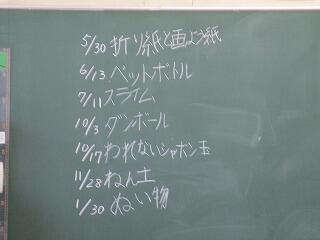 5/30 折り紙と画よう紙
6/13 ペットボトル
7/11 スライム
10/3 ダンボール
10/17 われないシャボン玉
11/28 ねん土
1/30 ぬい物